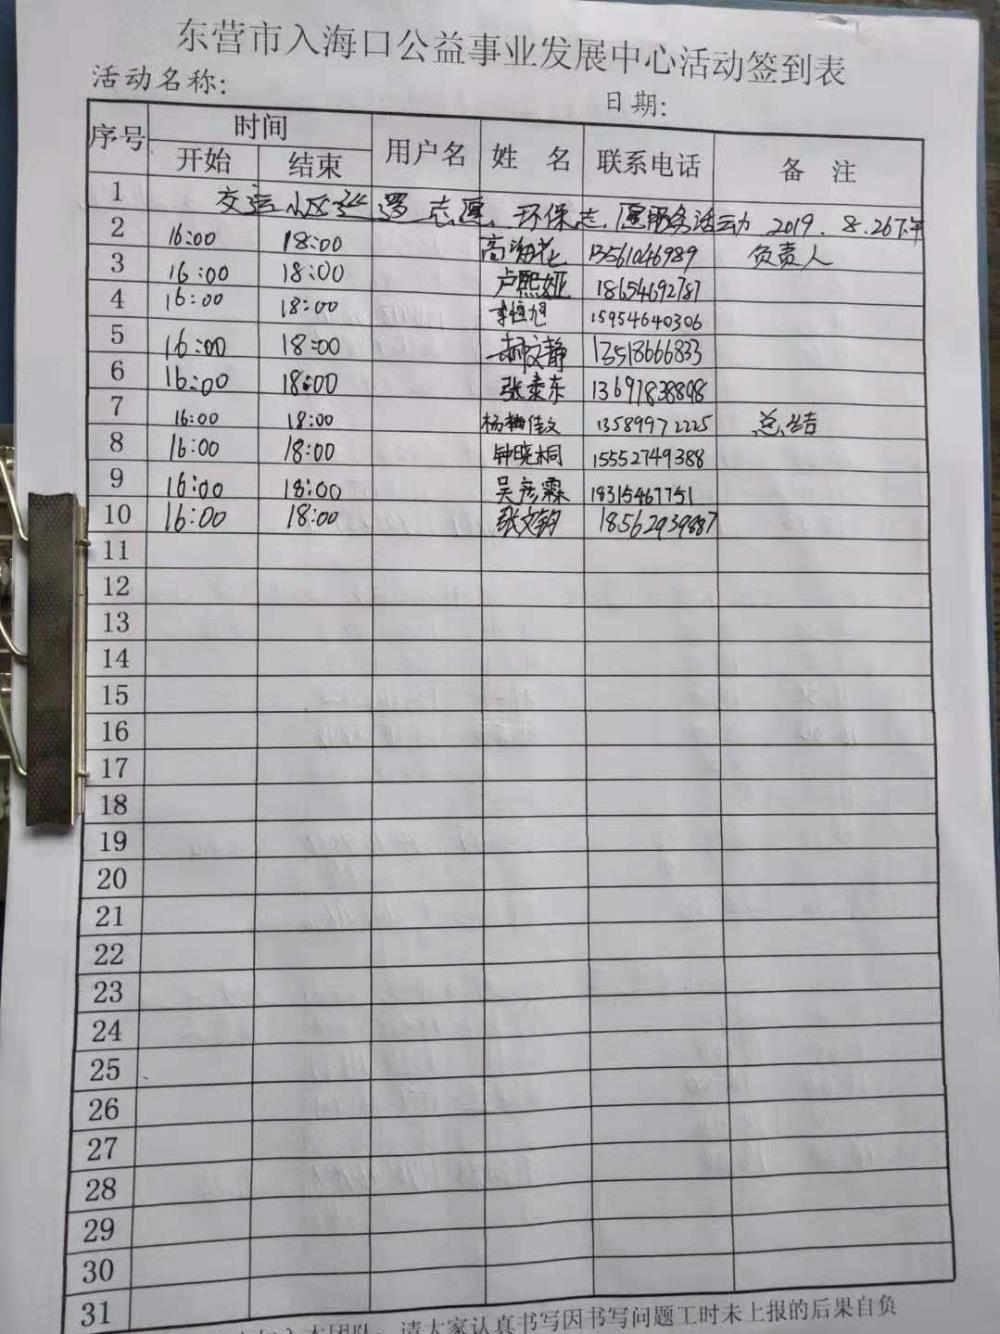 东营市入海口公益事业发展中心活动签到表
活动名称: 日期:
序号 时间 用户名 姓 名 联系电话 备 注
开始 结束
1 交运小区巡逻志愿、环保志愿服务活动 2019.8.26下午
2 16:00 18:00 高海花 13561046989 负责人
3 16:00 18:00 卢熙娅 18654692787
4 16:00 18:00 李恒旭 15954640306
5 16:00 18:00 郝文静 13518666833
6 16:00 18:00 张泰东 13697838898
7 16:00 18:00 杨 佳文 13589972225 总结
8 16:00 18:00 钟晓桐 15552749388
9 16:00 18:00 吴彦霖 18315467751
10 16:00 18:00 张文钧 18562939887
11
12
13
14
15
16
17
18
19
20
21
22
23
24
25
26
27
28
29
30
31
加入本团队,请大家认真书写因书写问题工时未上报的后果自负